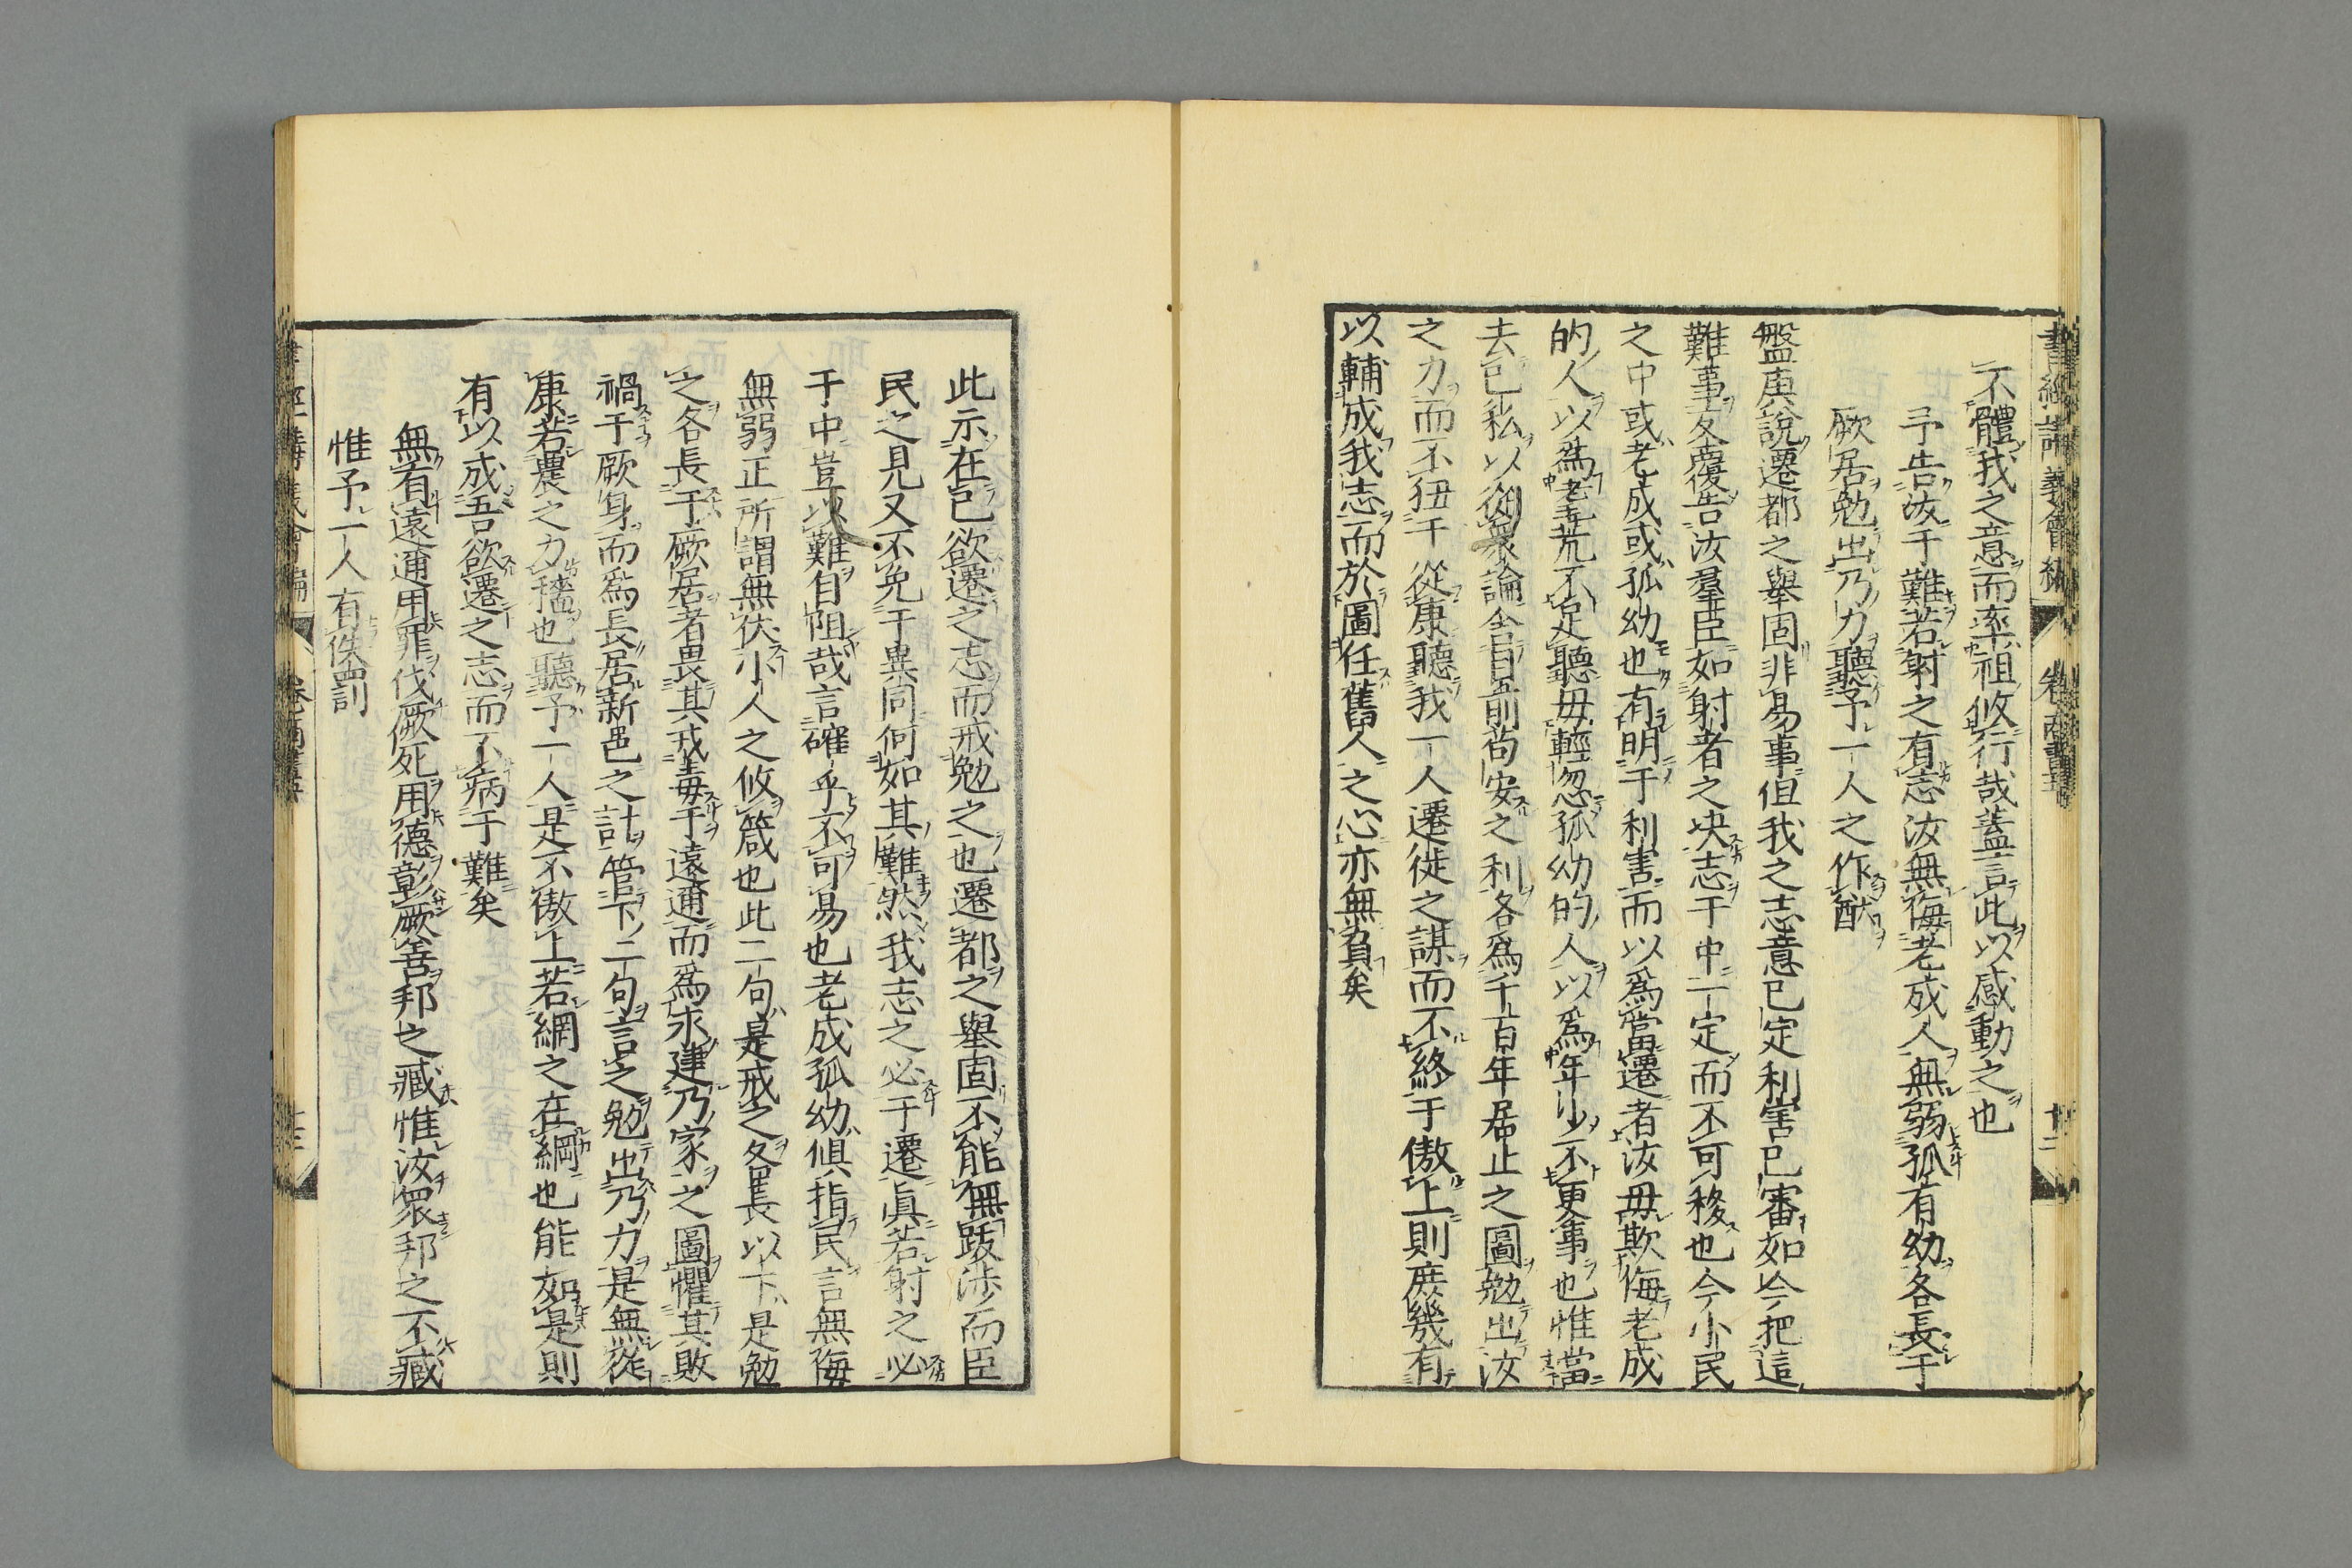 書經講義會編
卷商書
十二
不體我之意而率祖攸行哉蓋言此以感動之也
予告汝于難若射之有志汝無侮老成人無弱孤有幼各長于
厥居勉出乃力聽予一人之作猷
盤庚說遷都之舉固非易事但我之志意已定利害已審如今把這
難事反覆告汝羣臣如射者之决志于中一定而不可移也今小民
之中或老成或孤幼也有明于利害而以爲當遷者汝毋欺侮老成
的人以爲老耄荒不足聽毋輕忽孤幼的人以爲年少不更事也惟當
去己私以從衆論全目前苟安之利各爲千百年居止之圖勉出汝
之力而不狃于從康聽我一人遷徙之謀而不終于傲上則庶幾有
以輔成我志而於圖任舊人之心亦無負矣
此示在己欲遷之志而戒勉之也遷都之舉固不能無跋涉而臣
民之見又不免于異同何如其難然我志之必于遷眞若射之必
于中豈以難自阻哉言確乎不可易也老成孤幼俱指民言無侮
無弱正所謂無伏小人之攸箴也此二句是戒之各長以下是勉
之各長于厥居者畏其戎毒于遠邇而爲永建乃家之圖懼其敗
禍于厥身而爲長居新邑之計管下二句言之勉出乃力是無從
康若農之力穡也聽予一人是不傲上若網之在綱也能如是則
有以成吾欲遷之志而不病于難矣
無有遠邇用罪伐厥死用德彰厥善邦之臧惟汝衆邦之不臧
惟予一人有佚罰